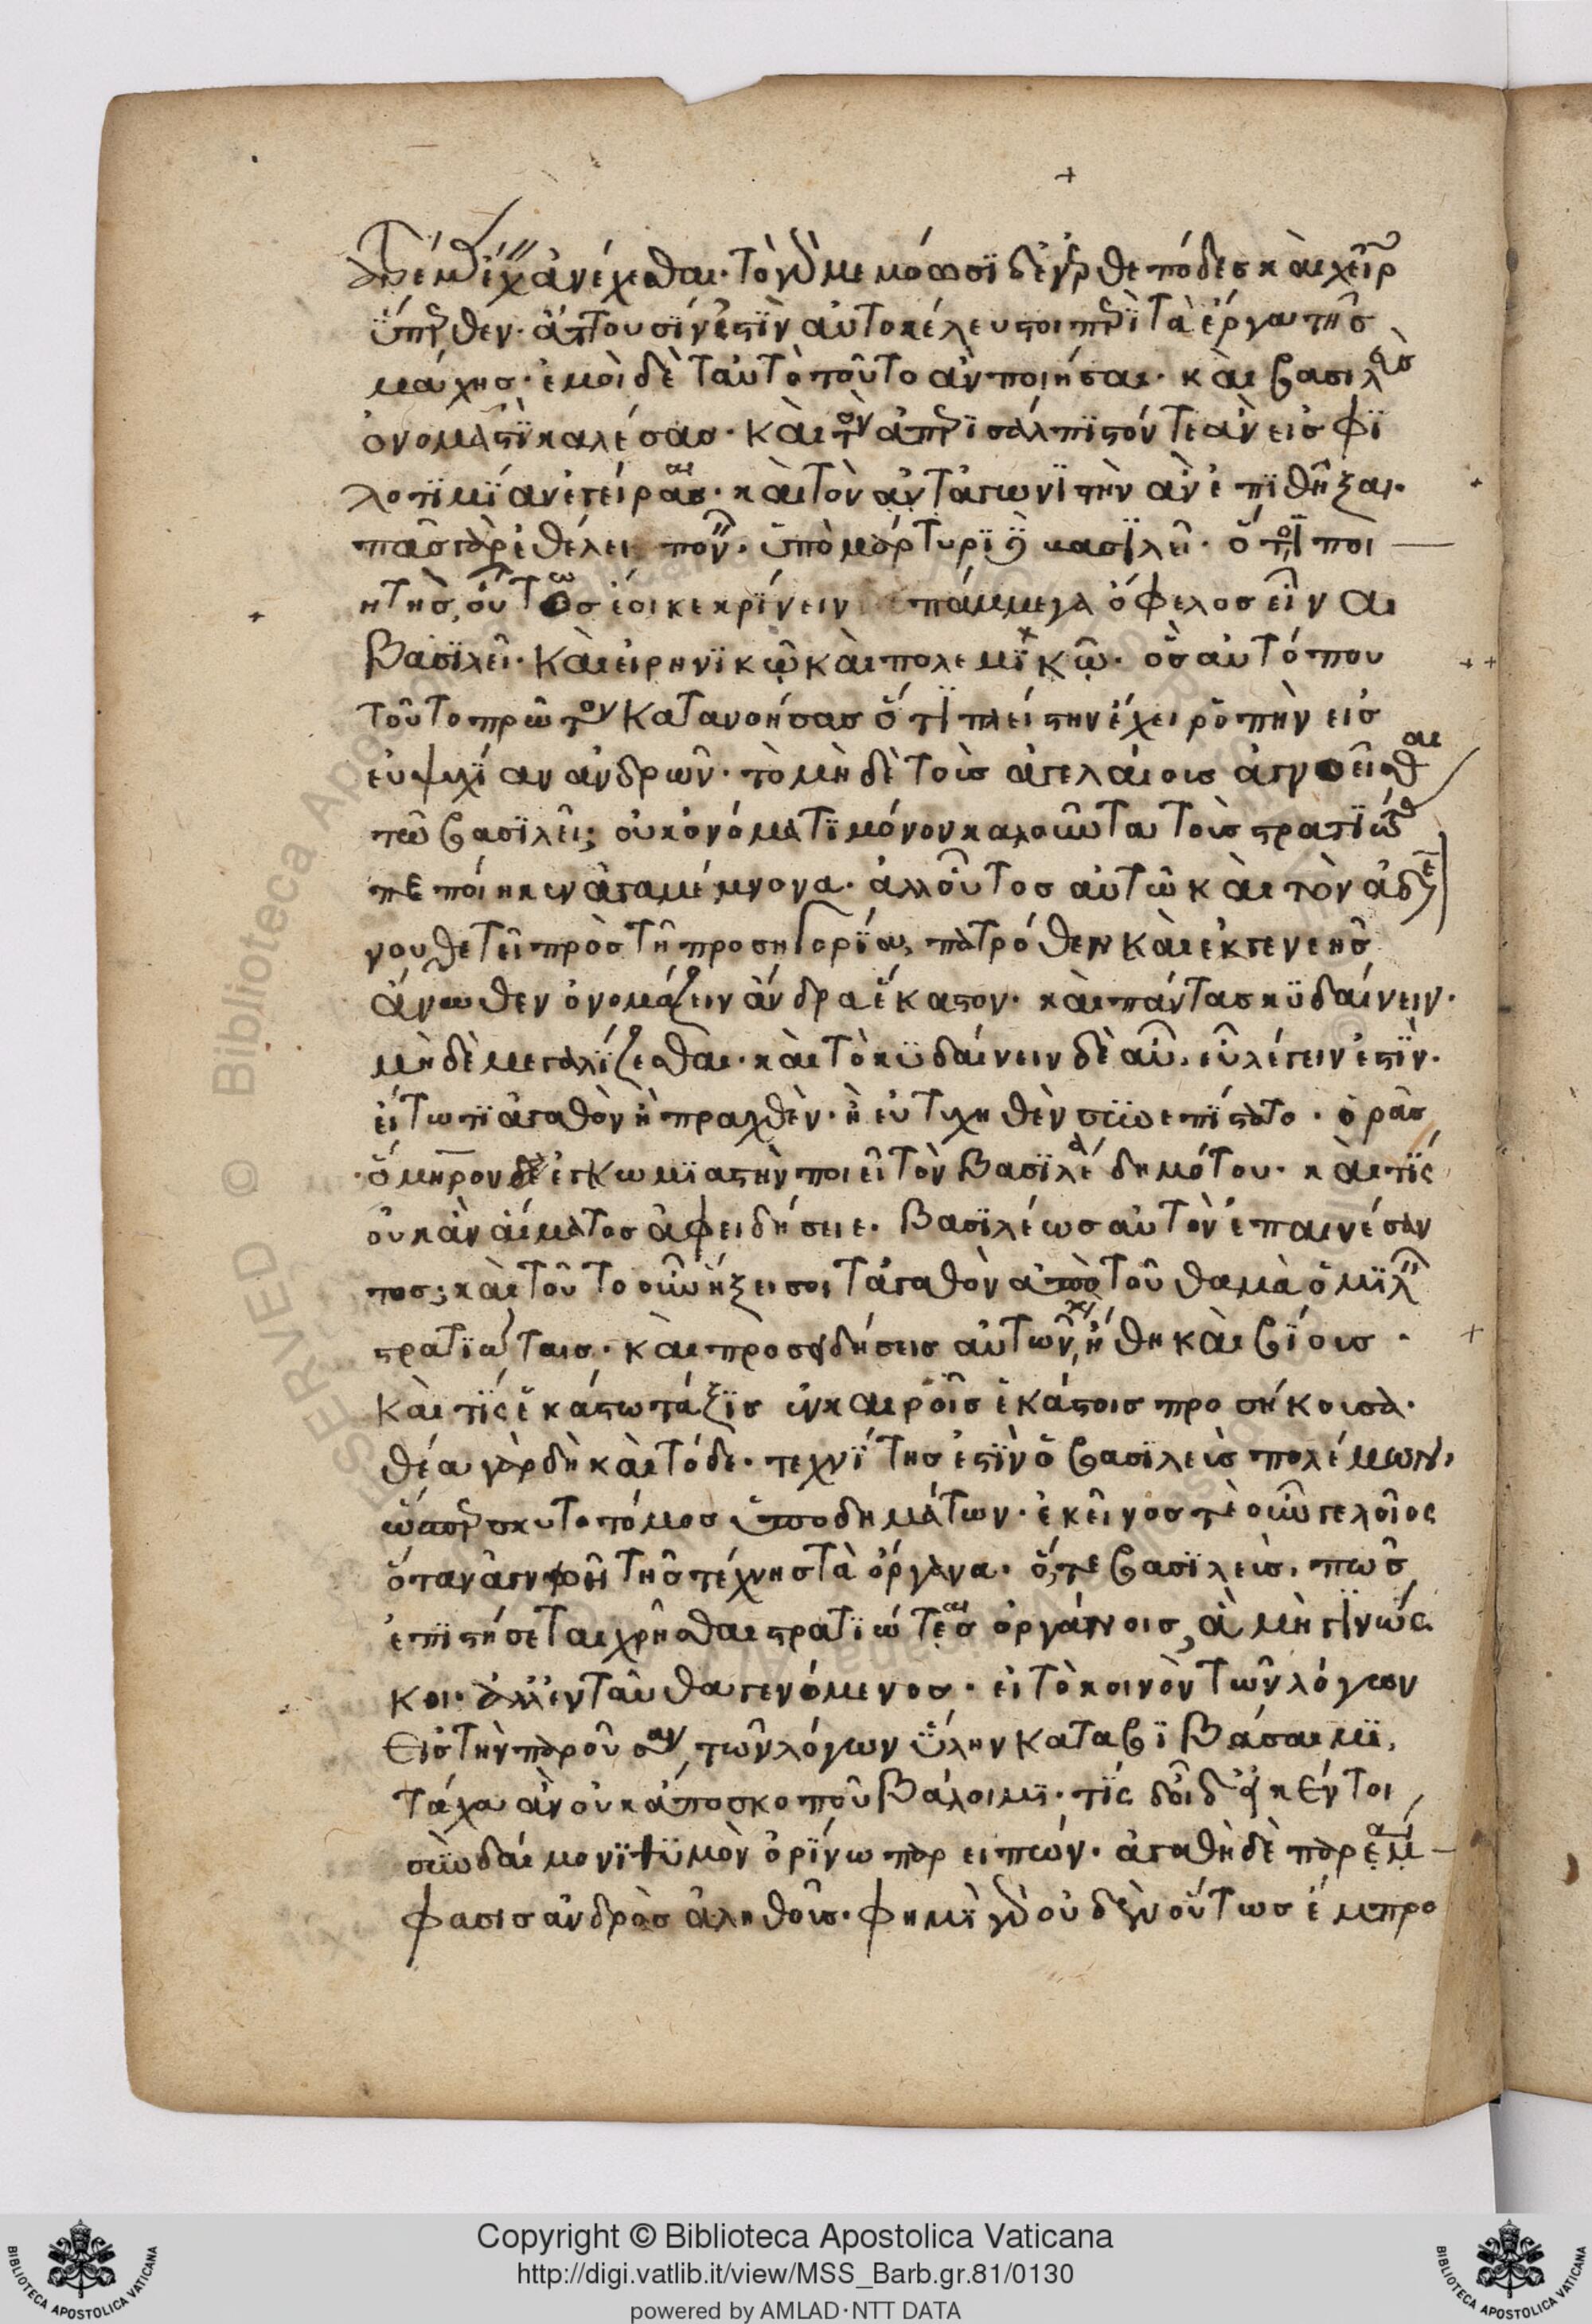 ἔτι ἀνέχεσθαι. τὸ γὰρ μεμόασι δ' ἔνερθε πόδες καὶ χεῖρες
ὕπερθεν. ἅπτουσίν ἐστϊν αὐτοκέλευστοι περὶ τὰ ἔργα τῆς
μάχης. ἐμοὶ δὲ ταὐτὸ τοῦτο ἂν ποιῆσαι. καὶ βασιλεὺς
ὀνομαστῒ καλέσας. καὶ τὸν ἀπερισάλπιστόν τε ἂν εἰς φϊ
λοτϊμϊαν ἐγείρας. καὶ τὸν ἀνταγωνϊστὴν ἂν ἐπϊθῆξαι.
πᾶς γὰρ ἐθέλει πονεῖν. ὑπὸ μάρτυρϊ βασιλεῖ. ὅτι ποι
ητὴς, οὕτως ἔοικε κρϊνειν πάμμεγα ὄφελος εἶναι
βασϊλεῖ. καὶ εἰρηνϊκῷ καὶ πολεμϊκῷ. ὃς αὐτό που
τοῦτο πρῶτον κατανοήσας ὅτϊ πλείστην ἔχει ῥοπὴν εἰς
εὐψυχϊαν ἀνδρῶν. τὸ μὴδὲ τοὺς ἀγελαίους ἀγνοεῖσθαι
τῷ βασϊλεῖ; οὐκ ὀνόματϊ μόνον καλοῦντα τοὺς στρατϊώτας
πεποίηκεν ἀγαμέμνονα. ἀλλ' οὗτος αὐτῶ καὶ τὸν ἀδελφὸν
νουθετεῖ πρὸς τῆ προσηγορϊα, πατρόθεν καὶ ἐκ γενεῆς
ἄνωθεν ὀνομάζειν ἄνδρα ἕκαστον. καὶ πάντας κϋδαίνειν.
μὴδὲ μεγαλϊζεσθαι. καὶ τὸ κϋδαίνειν δὲ αὖ. εὖ λέγειν ἐστϊν.
εἴ τω τϊ ἀγαθὸν ἢ πραχθὲν. ἢ εὐτυχηθὲν συνεπϊστατο. ὁρᾶς
ὅμηρον δὲ ἐγκωμϊαστὴν ποιεῖ τὸν βασϊλέα δημότου. καὶ τϊς
οὐκ ἂν αἵματος ἀφειδήσειε. βασϊλέως αὐτὸν ἐπαινέσαν
τος; καὶ τοῦτο οὖν ἥξει σοι τἀγαθὸν ἀπὸ τοῦ θαμὰ ὁμϊλεῖν
στρατϊώταις. καὶ προσειδήσεις αὐτῶν, ἤθη καὶ βϊους.
καὶ τϊς ἑκάστω τάξϊς ἐν καιροῖς ἑκάστοις προσήκουσα.
θέα γὰρ δὴ καὶ τόδε. τεχνϊτης ἐστϊν ὁ βασϊλεὺς πολέμων.
ὥσπερ σκυτοτόμος ὑποδημάτων. ἐκεῖνος τὲ οὖν γελοῖος
ὅταν ἀγνοῆ τῆς τέχνης τὰ ὄργανα. ὅ, τε βασϊλεὺς. πῶς
ἐπϊστήσεται χρῆσθαι στρατϊώταις ὀργάνοις, ἃ μὴ γϊνώς
κοι. ἀλλ' ἐνταῦθα γενόμενος. εἰ τὸ κοινὸν τῶν λόγων
εἰς τὴν παροῦσαν, τῶν λόγων ὕλην καταβϊβάσαιμϊ,
τάχα ἂν οὐκ ἄπο σκοποῦ βάλοιμϊ. τϊς δ' οἶδ' εἴ κέν τοι
σὺν δαίμονϊ θϋμὸν ὀρϊνω παρειπών. ἀγαθὴ δὲ παραί
φασις ἀνδρὸς ἀληθοῦς. φημϊ γὰρ οὐδὲν οὕτως ἔμπρο